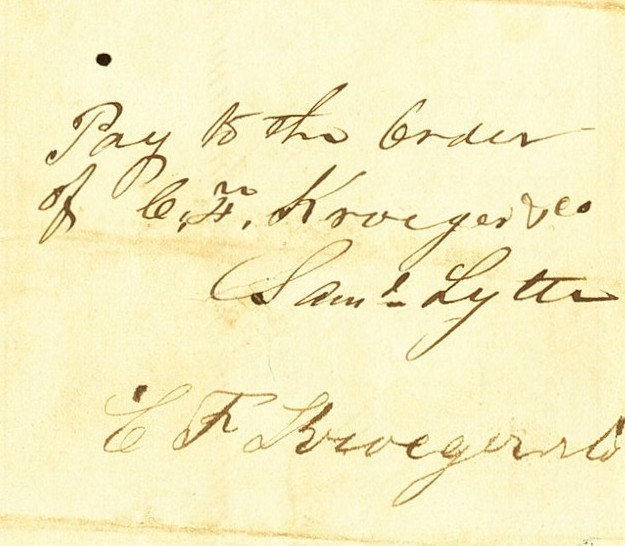 Pay to the Order
of C. F. Kroeger & Co
Saml Lytle
C F Kroeger & Co